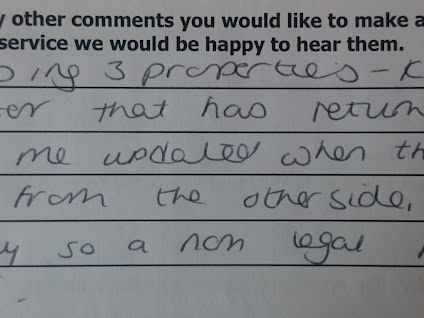 y other comments you would like to make a
service we would be happy to hear them.
ing 3 properties - K
er that has return
me updated when th
from the other side,
y so a non legal